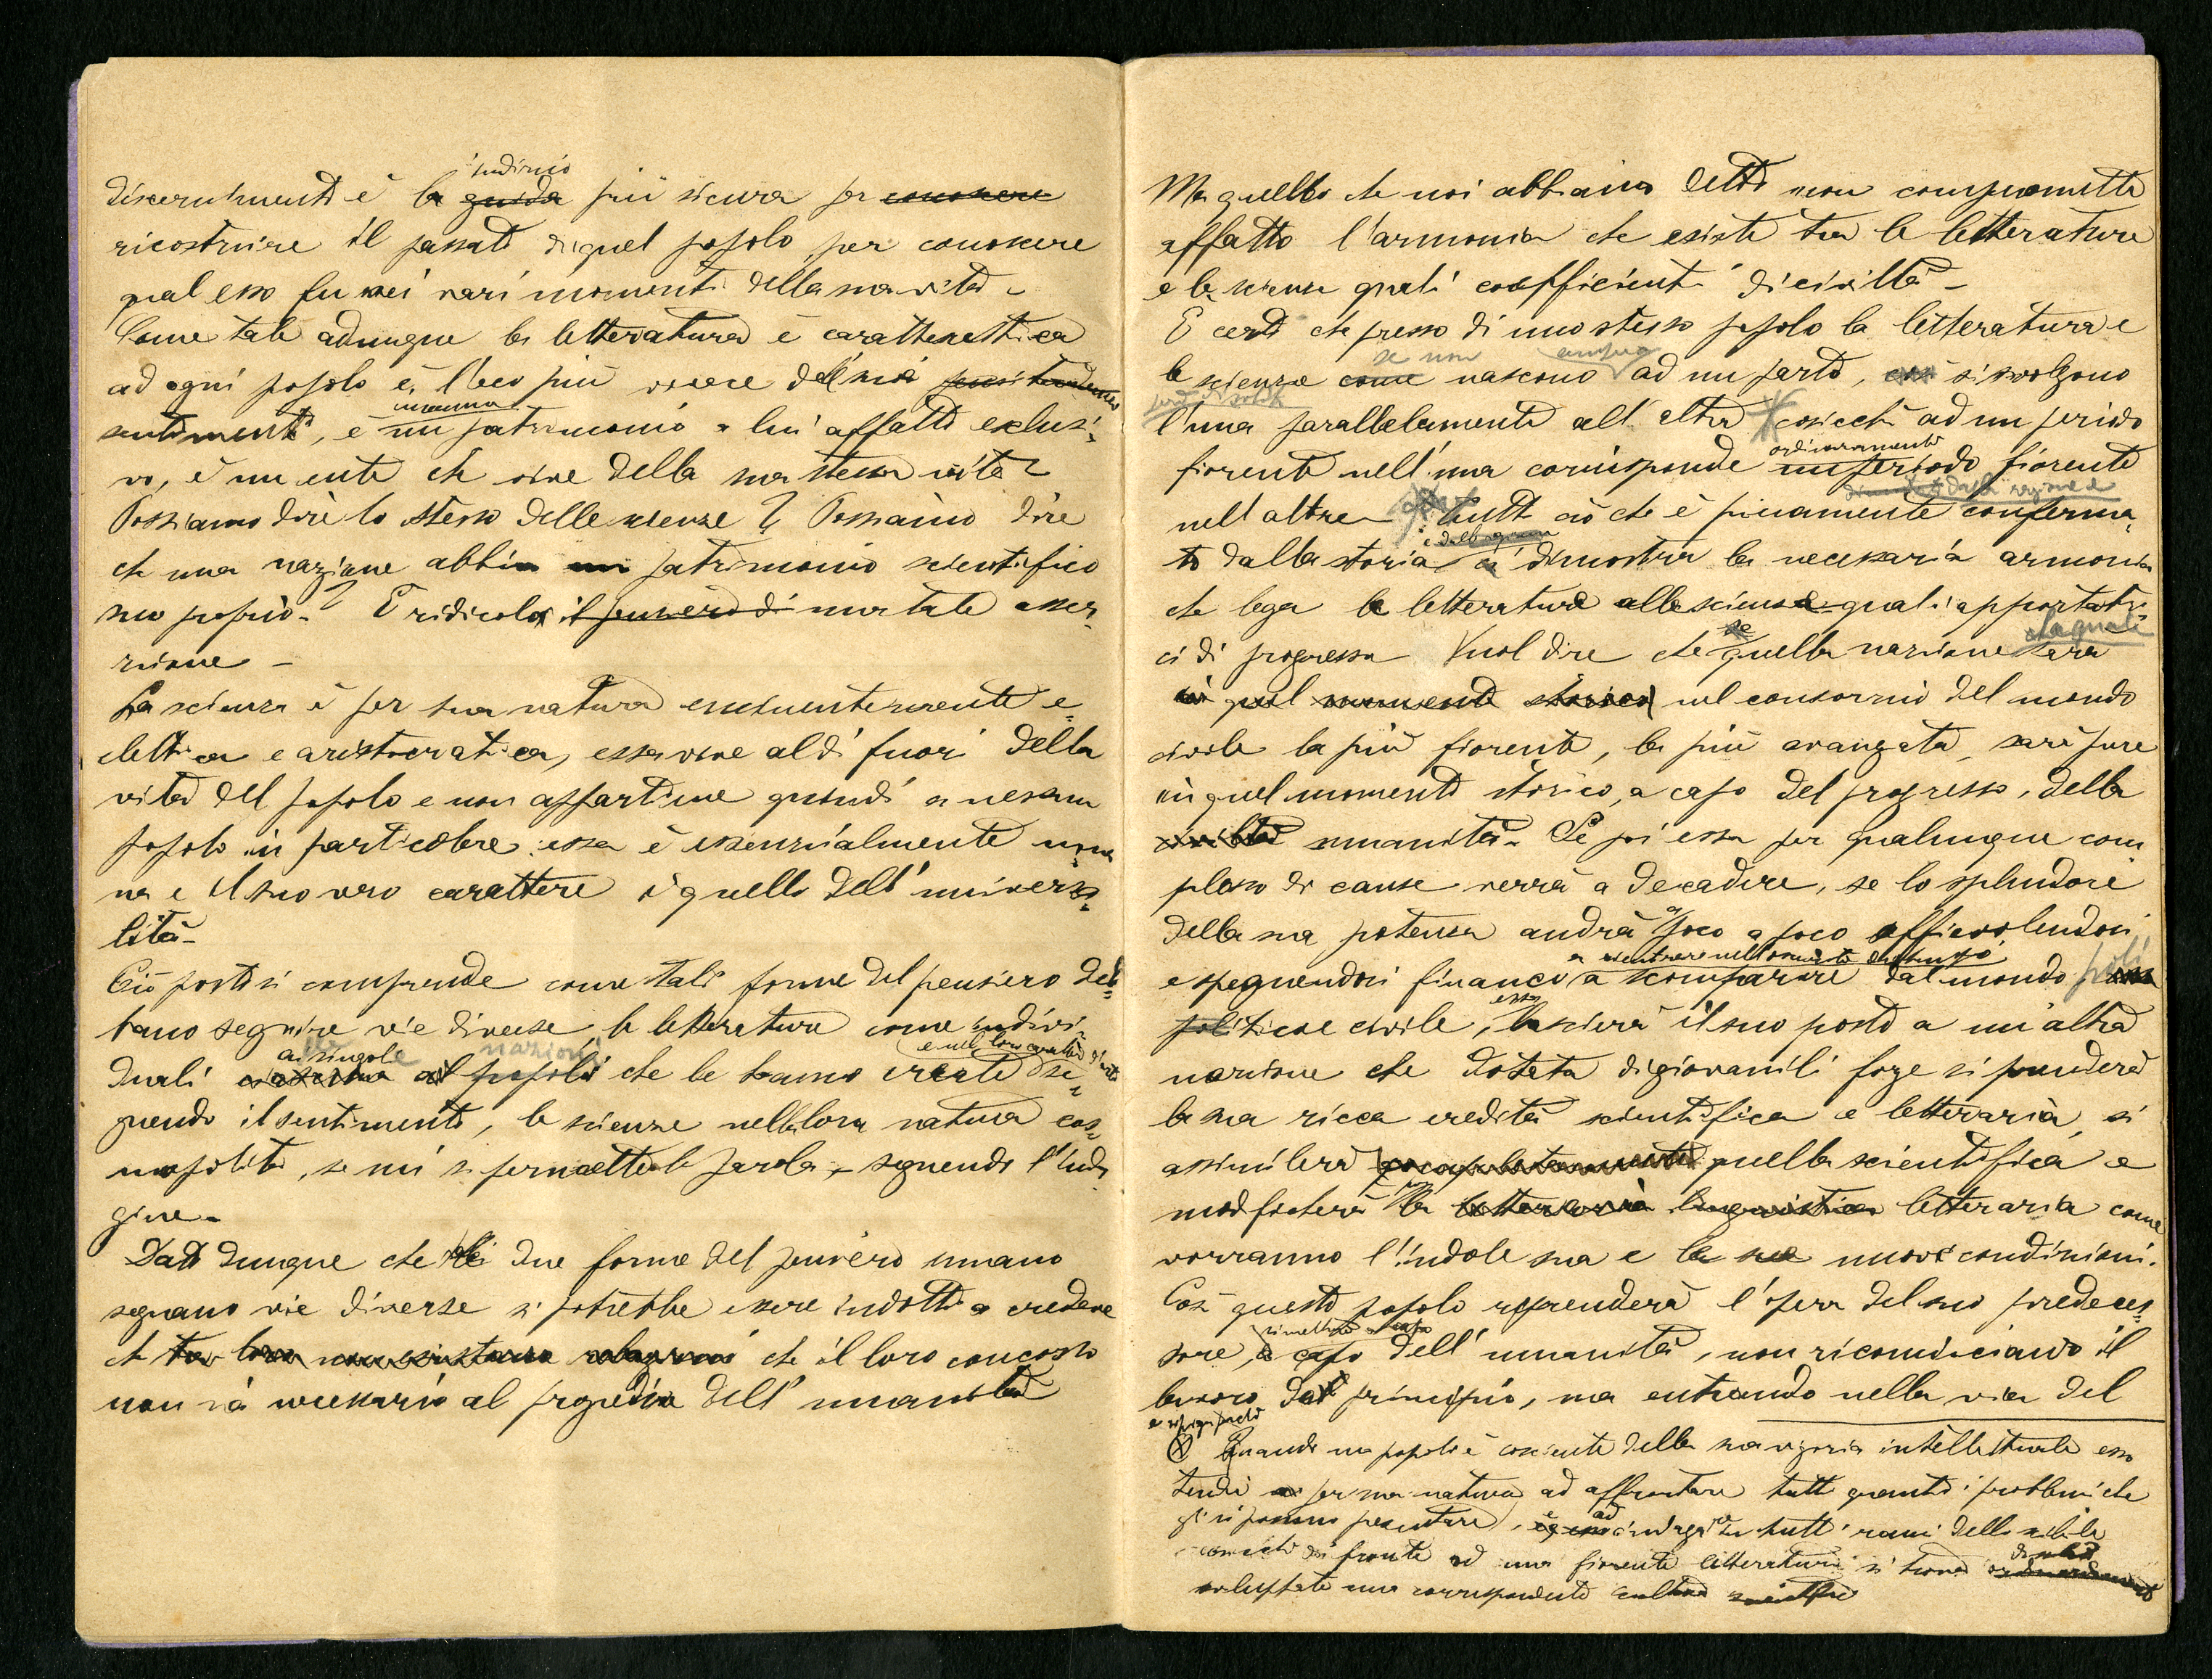 indizio
discernimento è la guida più sicura per conoscere
ricostruire il passato di quel popolo, per conoscere
qual esso fu nei vari momenti della sua vita -
Come tale adunque la letteratura è caratteristica
ad ogni popolo è, l'eco più vivace del suo
sentimento, è un patrimonio a lui affatto esclusi-
vo, è un ente che vive della sua stessa vita -
Possiamo dire lo stesso delle scienze? Possiamo dire
che una nazione abbia un patrimonio scientifico
suo proprio? È ridicola il pensiero di una tale asser-
zione -
La scienza è per sua natura eminentemente e-
clettica e aristocratica, essa vive al di fuori della
vita del popolo e non appartiene quindi a nessun
popolo in particolare; essa è essenzialmente uma-
na e il suo vero carattere è quello dell'universa-
lità -
Ciò posto si comprende come tali forme del pensiero deb-
bano seguire vie diverse, le letterature come indivi-
ai singoli nazioni
duali al popolo che le hanno create se-
guendo il sentimento, le scienze nella loro natura cos-
mopolita, se mi si permette la parola, seguendo l'inda-
gine -
Dato dunque che le due forme del pensiero umano
seguano vie diverse si potrebbe essere indotti a credere
che tra loro non esistano relazioni che il loro concorso
non sia necessario al progredire dell'umanità
Ma quello che noi abbiamo detto non compromette
affatto l'armonia che esiste tra le letterature
e le scienze quali coefficienti di civiltà -
È certo che presso di uno stesso popolo la letteratura e
se non
le scienze come nascono ad un parto, così si svolgono
l'una parallelamente all'altra cosicchè ad un periodo
ordinariamente
fiorente nell'una corrisponde un periodo fiorente
nell'altra - Tutto ciò che è pienamente conferma-
to dalla storia ci dimostra la necessaria armonia
che lega le letterature alle scienze quali apportatri-
se la quale
ci di progresso Vuol dire che quella nazione sarà
in quel momento storico nel consorzio del mondo
civile la più fiorente, la più avanzata, sarà pure
in quel momento storico, a capo del progresso, della
civiltà umanità - Se poi essa per qualunque com-
plesso di cause verrà a decadere, se lo splendore
della sua potenza andrà a poco a poco affievolendosi
e spegnendosi financo a scomparire dal mondo
essa
politico e civile, lascierà il suo posto a un'altra
nazione che dotata di giovanili forze si prenderà
la sua ricca eredità scientifica e letteraria, si
assimilerà completamente quella scientifica e
modificherà la letteraria linguistica letteraria come
vorranno l'indole sua e le sue nuove condizioni.
Così questo popolo riprenderà l'opera del suo predeces-
sore, a capo dell'umanità, non ricominciando il
lavoro dal principio, ma entrando nella via del
Quando un popolo è cosciente della sua vigoria intellettuale esso
tende per sua natura ad affrontare tutti quanti i problemi che
gli si possono presentare, ad indagare tutti i rami dello scibile
cosicchè di fronte ad una fiorente letteratura si trova
sviluppata una corrispondente cultura scientifica